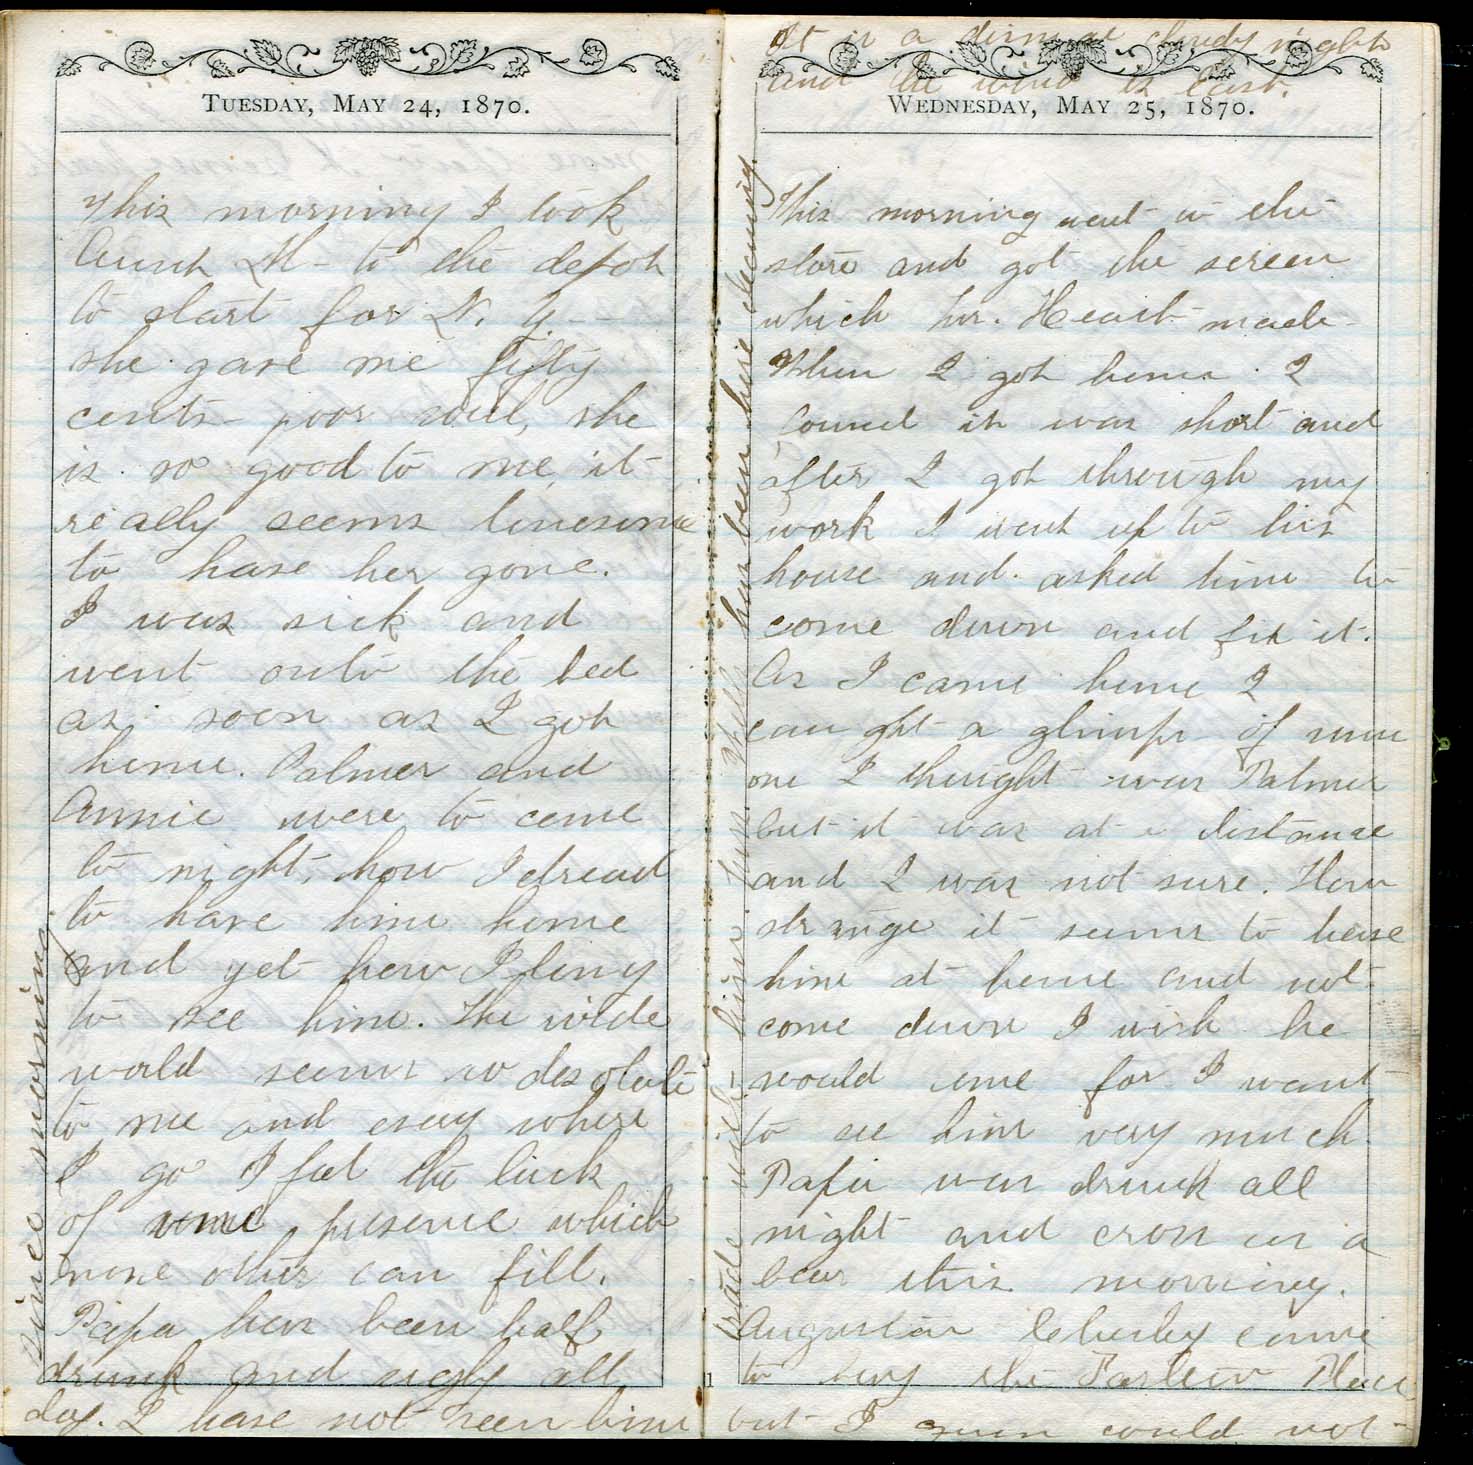 Tuesday, May 24, 1870.
This morning I took
Aunt H - to the depot
to start for N. Y. -
she gave me fifty
cents - poor soul, she
is so good to me, it
really seems lonesome
to have her gone.
I was sick and
went onto the bed
as soon as I got
home. Palmer and
Annie were to come
to night, how I dread
to have him home
and yet how I long
to see him. The wide
world seems so desolate
to me and every where
I go I feel the lack
of some presence which
none other can fill.
Papa has been half
drunk and ugly all
day. I have not seen him
since morning
It is a dismal cloudy night
and the wind is East.
Wednesday, May 25, 1870.
This morning went to the
store and got the screen
which Mr. Heart made
When I got home I
found it was short and
after I got through my
work I went up to his
house and asked him to
come down and fix it.
As I came home I
caught a glimps of some
one I thought was Palmer
but it was at a distance
and I was not sure. How
strange it seems to have
him at home and not
come down I wish he
would come for I want
to see him very much.
Papa was drunk all
night and cross as a
bear this morning.
Augustin came
to buy the Place
but I guess could not
trade with him. Tom Wells has been here cleaning